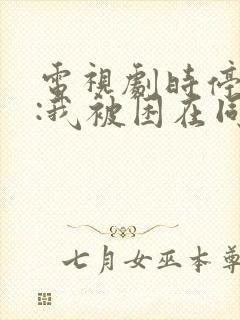 電視劇時停
:我被困在同
七月女巫本尊